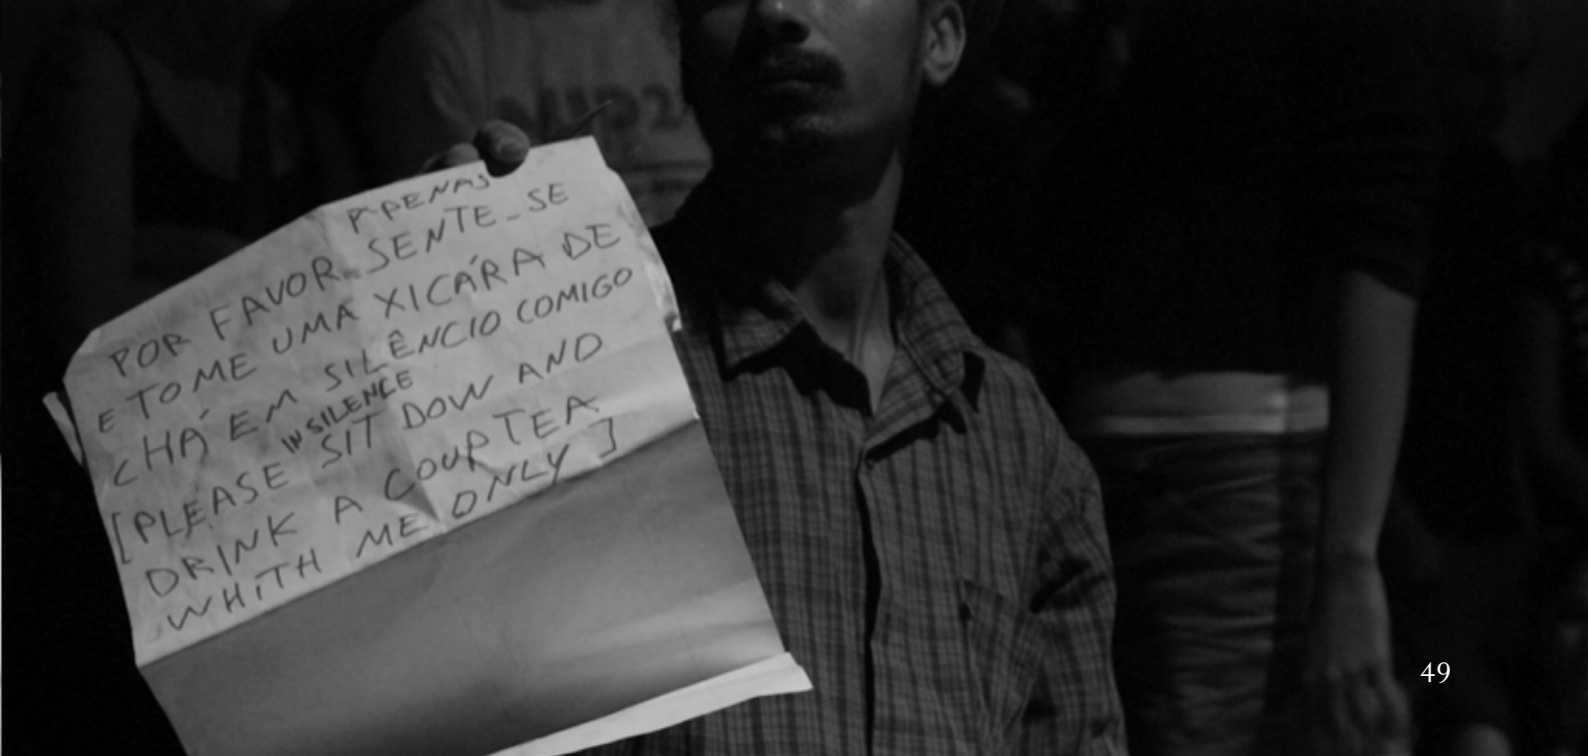 APENAS
POR FAVOR SENTE-SE
E TOME UMA XICÁRA DE
CHÁ EM SILÊNCIO COMIGO
IN SILENCE
[PLEASE SIT DOW AND
DRINK A COUP TEA
WHITH ME ONLY]
49